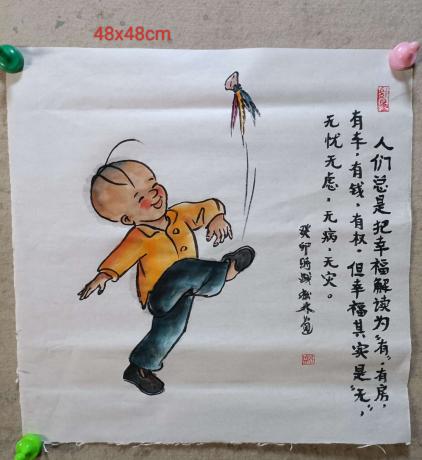 48x48cm
人们总是把幸福解读为"有",有房,
有车,有钱,有权。但幸福其实是"无",
无忧无虑,无病,无灾。
癸卯